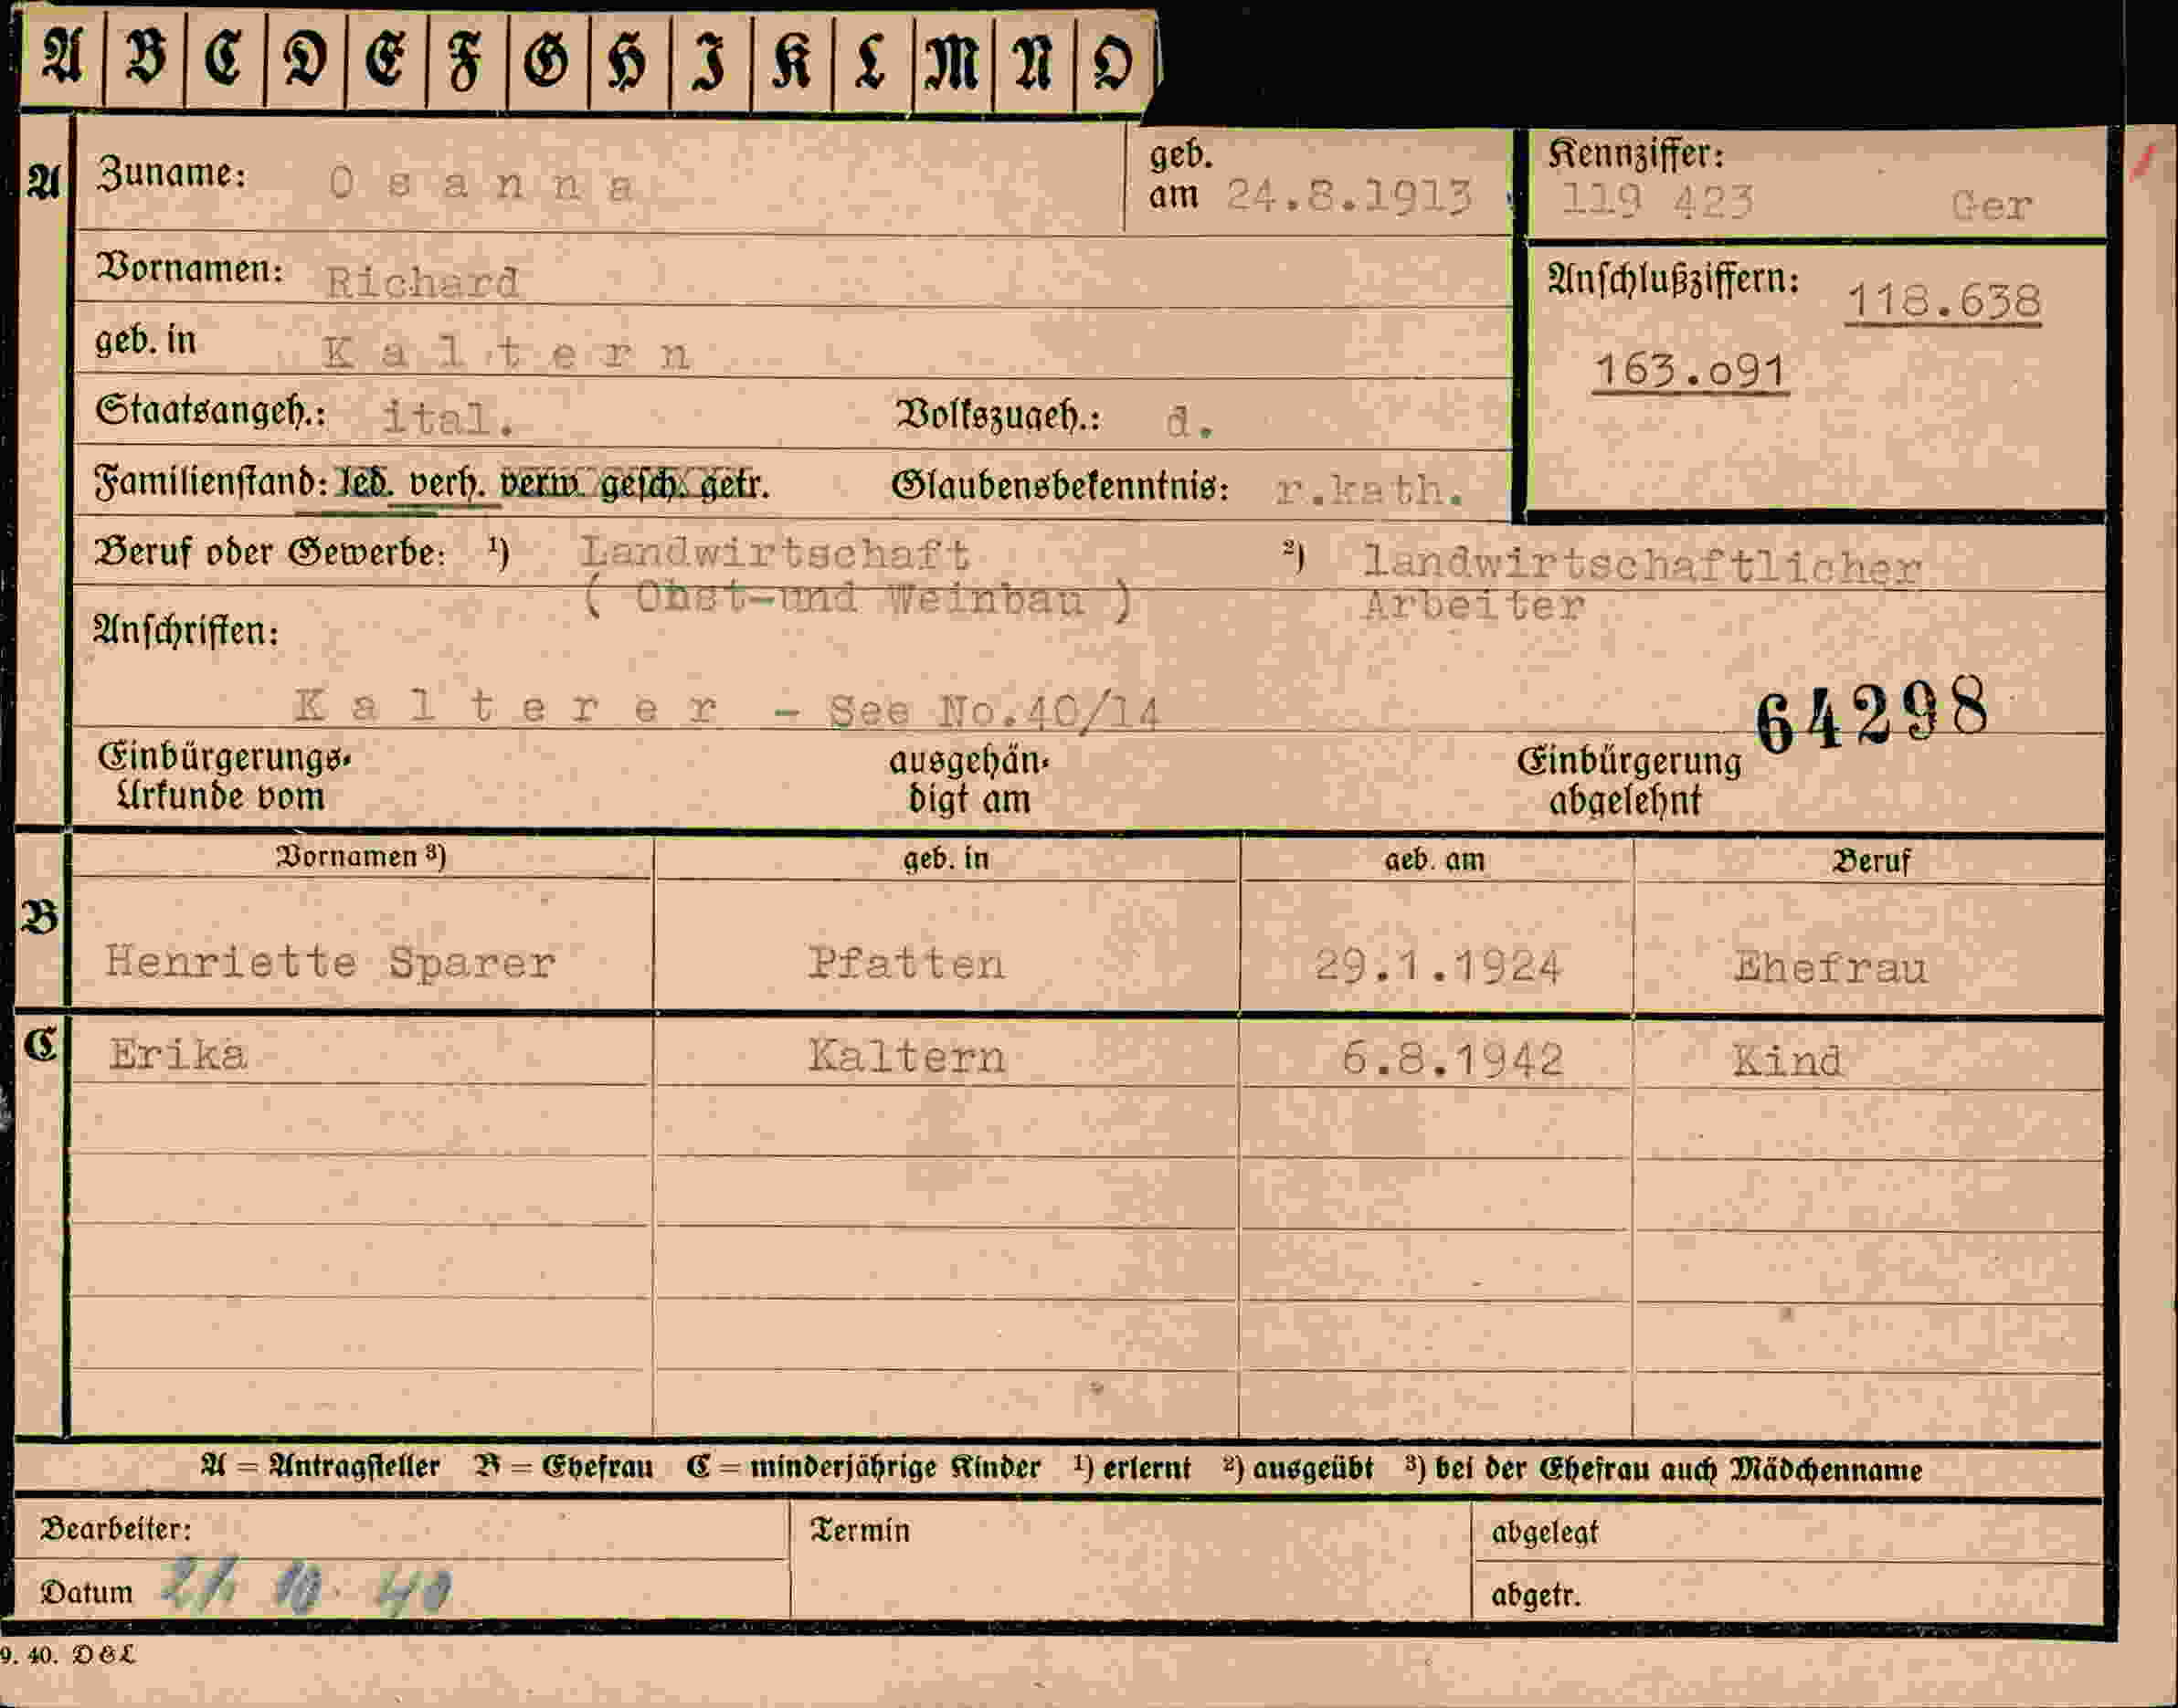 A B C D E F G H I K L M N O
A Zuname: Osanna geb. am 24.8.1913 Kennziffer: 119 423 Ger
Vornamen: Richard
Anschlußziffern: 118.638
geb. in Kaltern
163.o91
Staatsangeh.: ital. Volkszugeh.: d.
Familienstand: led. verh. verw. gesch. getr. Glaubensbekenntnis: r.kath.
Beruf oder Gewerbe: ¹) Landwirtschaft ²) landwirtschaftlicher
( Obst-und Weinbau ) Arbeiter
Anschriften:
Kalterer - See No.40/14
64298
Einbürgerungs- ausgehän- Einbürgerung
Urkunde vom digt am abgelehnt
Vornamen ³) geb. in geb. am Beruf
B
Henriette Sparer Pfatten 29.1.1924 Ehefrau
C Erika Kaltern 6.8.1942 Kind
A = Antragsteller B = Ehefrau C = minderjährige Kinder ¹) erlernt ²) ausgeübt ³) bei der Ehefrau auch Mädchenname
Bearbeiter: Termin abgelegt
Datum 10. 40 abgetr.
9. 40. D&L